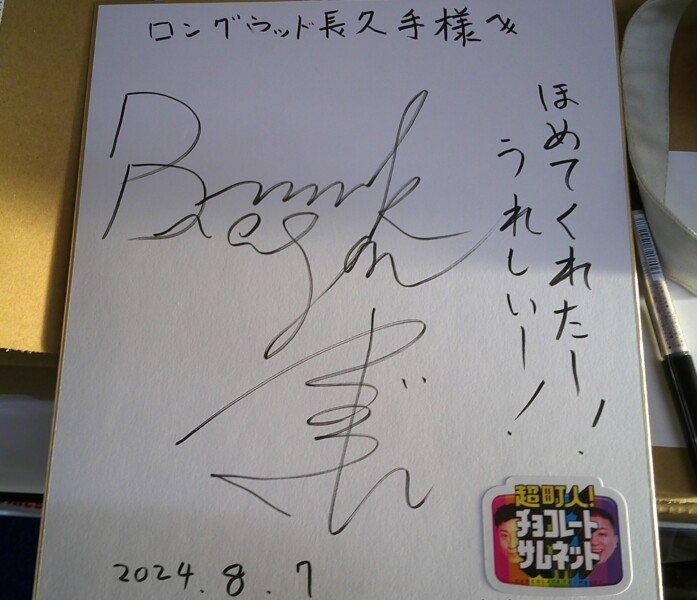 ロングウッド長久手様へ
ほめてくれたー!
うれしいー!
2024.8.7
超町人!
チョコレート
サムネット